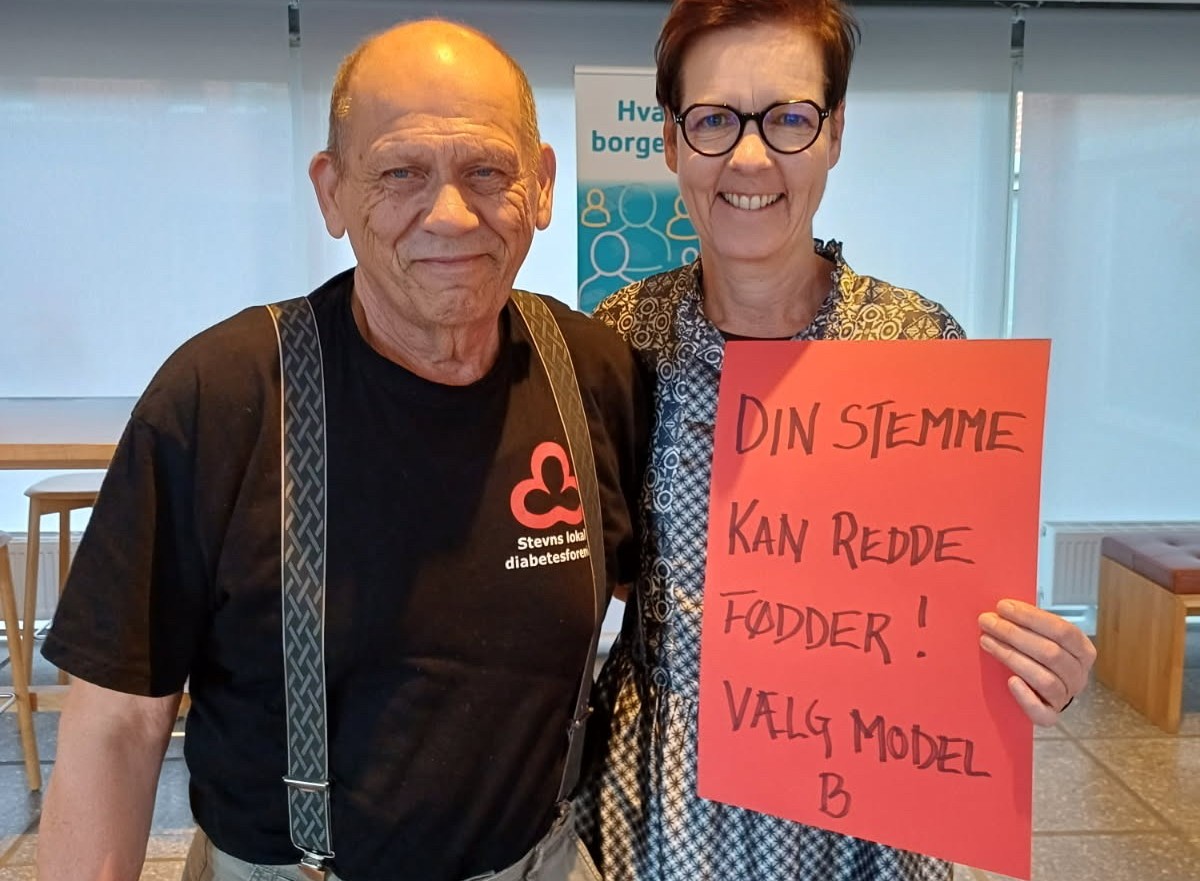 Hva
borge
Stevns lokal
diabetesforen
DIN STEMME
KAN REDDE
FØDDER!
VÆLG MODEL
B